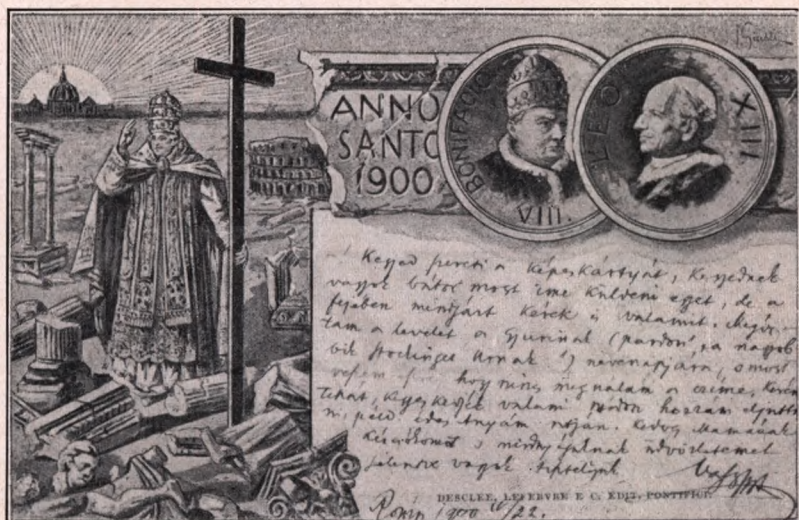 ANNO
SANTO
1900
BONIFACIO
VIII.
LEO
XIII
Kegyed szereti a képeskártyát, Kegyednek
vagyok bátor most ime küldeni egyet, de a
fejében mindjárt kérek is valamit.
tam a levelet a Gyurinak (pardon, a nagyob
bik Urnak !) névnapjára, s most
hogy nincs meg nálam a czime, Kérem
tehát, valami módon hozzám
ni, péld. édes Anyám utján. Kedves Mamának
s mindnyájuknak üdvözletemet
jelentve vagyok tisztelője
DESCLÉE, LEFEBVRE E C. EDIT. PONTIFICI.
Róma 1900 IV/22.